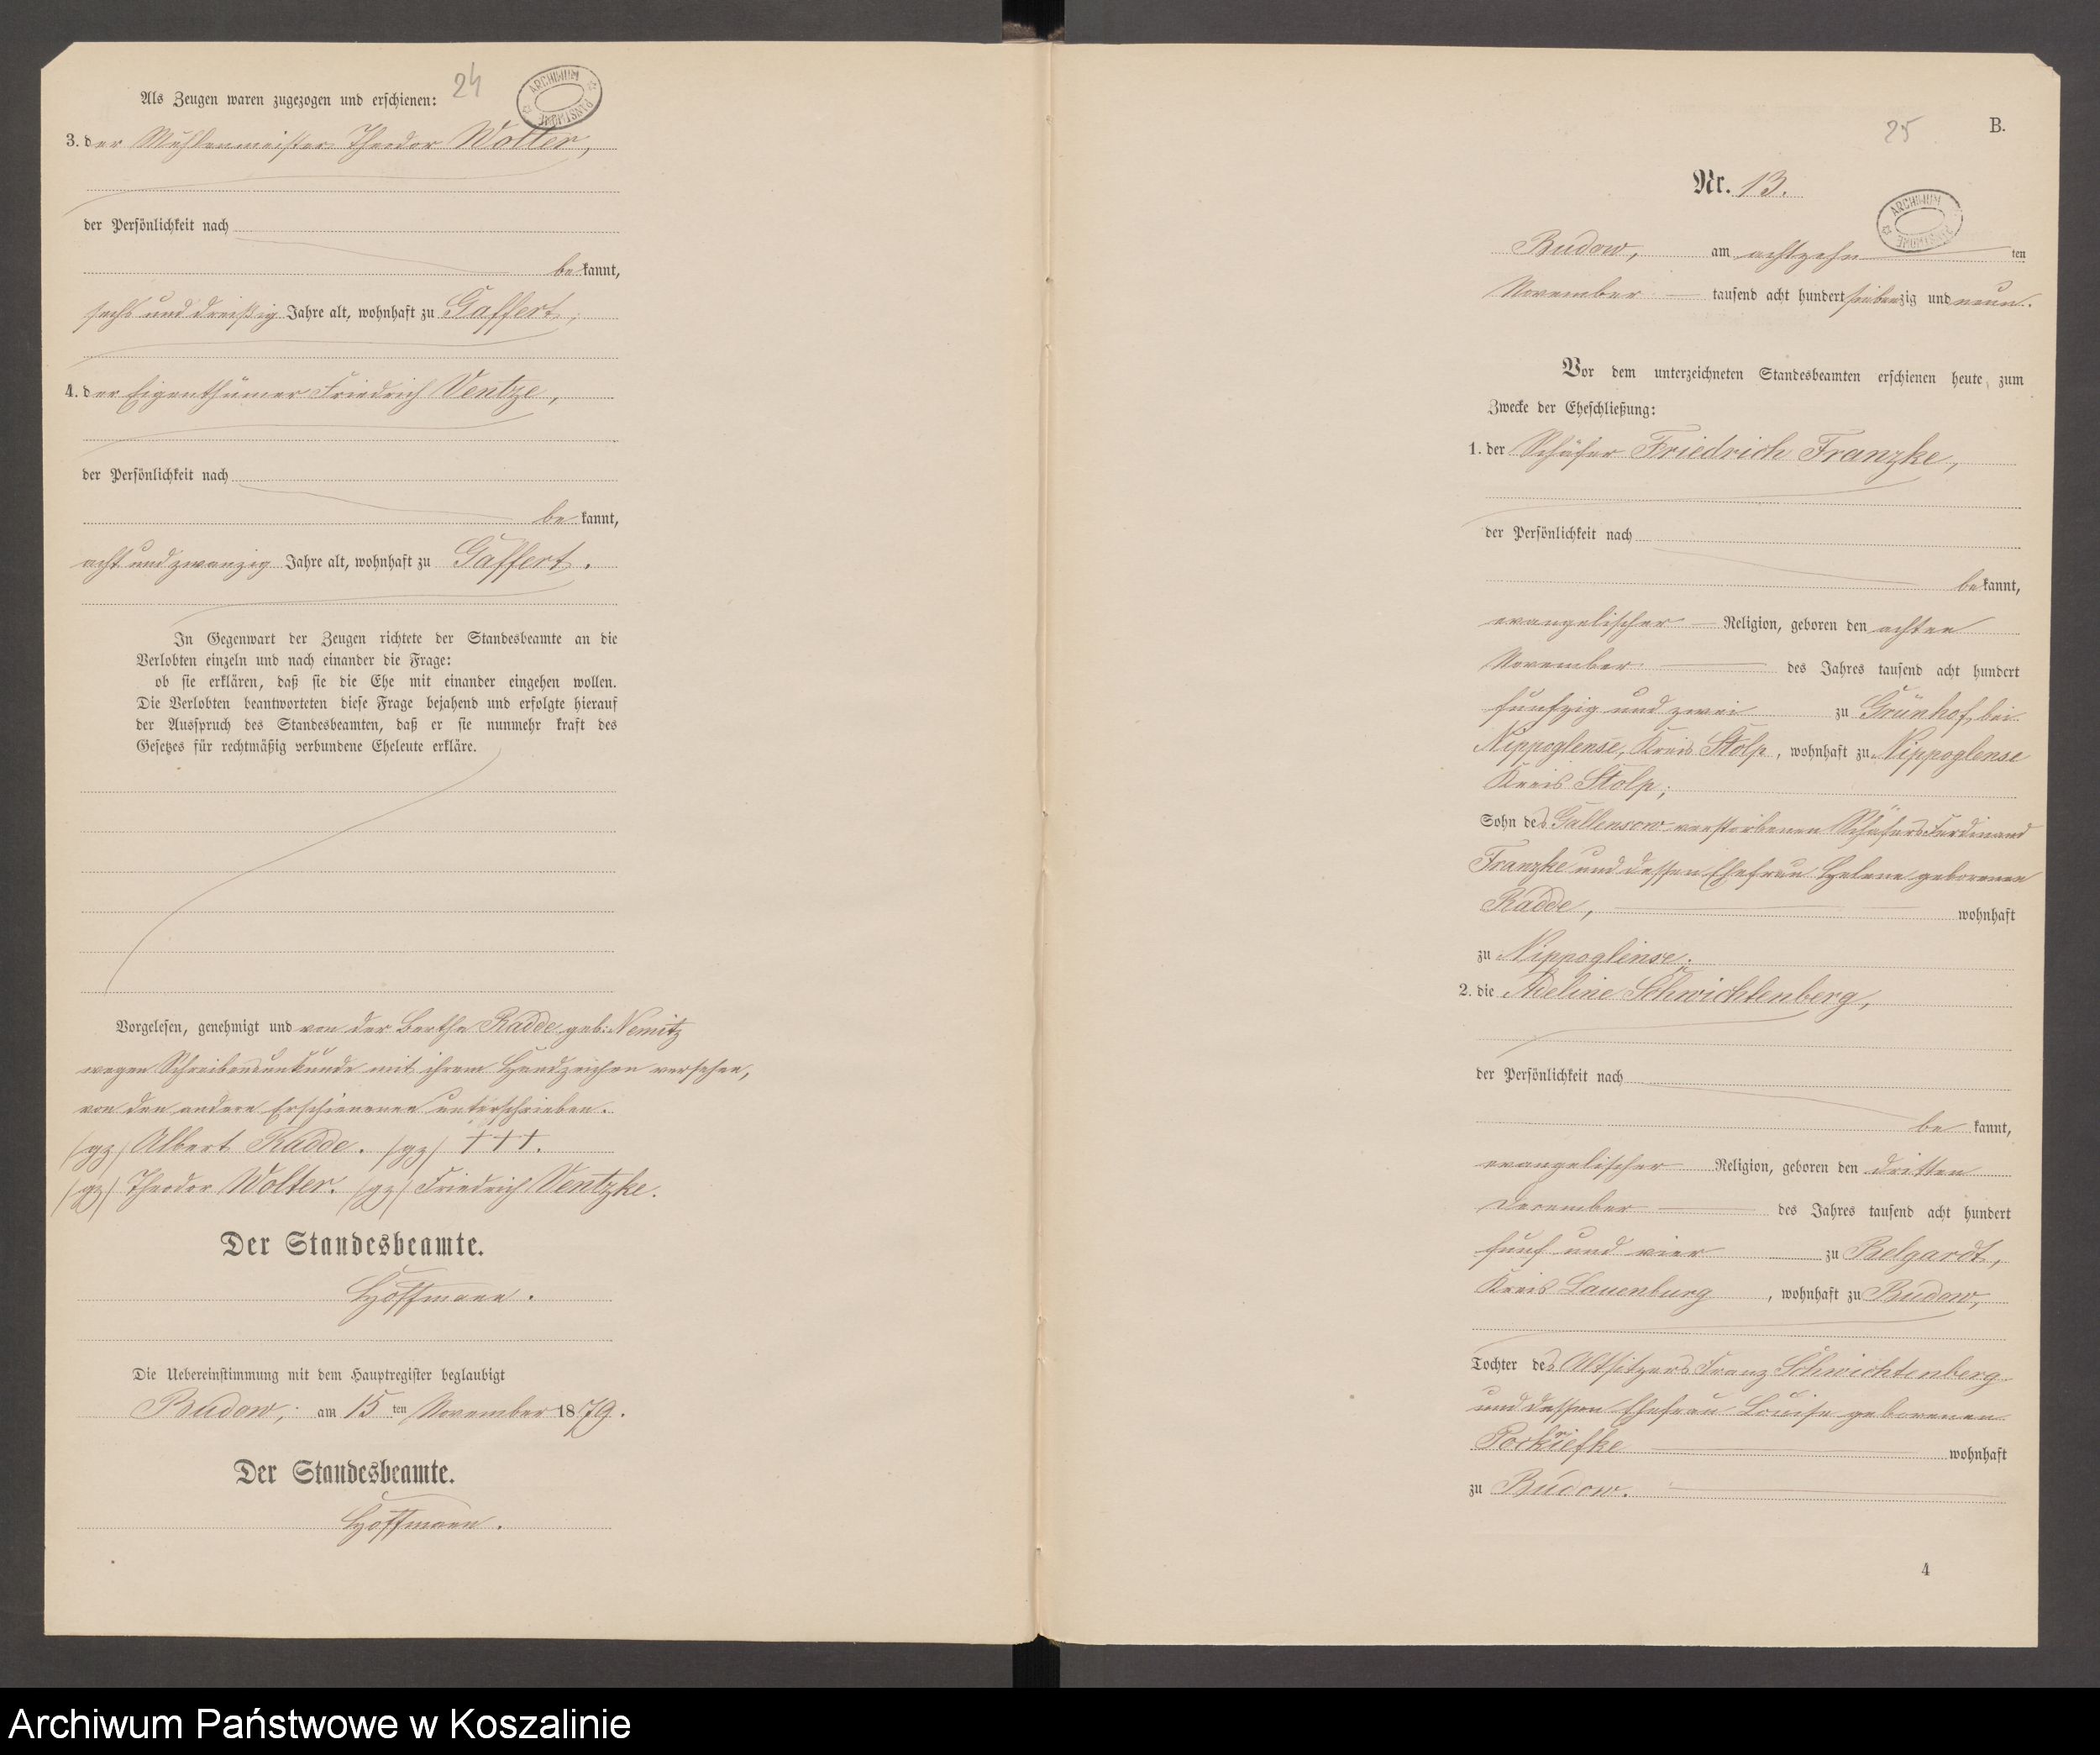 24
ARCHIWUM PAŃSTWOWE
Als Zeugen waren zugezogen und erschienen:
3. der Mühlenmeister Theodor Wolter,
der Persönlichkeit nach
bekannt,
sechs und dreißig Jahre alt, wohnhaft zu Gaffert,
4. der Eigenthümer Friedrich Ventzke,
der Persönlichkeit nach
bekannt,
acht und zwanzig Jahre alt, wohnhaft zu Gaffert.
In Gegenwart der Zeugen richtete der Standesbeamte an die
Verlobten einzeln und nach einander die Frage:
ob sie erklären, daß sie die Ehe mit einander eingehen wollen.
Die Verlobten beantworteten diese Frage bejahend und erfolgte hierauf
der Ausspruch des Standesbeamten, daß er sie nunmehr kraft des
Gesetzes für rechtmäßig verbundene Eheleute erkläre.
Vorgelesen, genehmigt und von der Bertha Radde geb: Nemitz
wegen Schreibensunkunde mit ihrem Handzeichen versehen,
von den andern Erschienenen unterschrieben.
/gz/ Albert Radde. /gz/ +++.
/gz/ Theodor Wolter. /gz/ Friedrich Ventzke.
Der Standesbeamte.
Hoffmann.
Die Uebereinstimmung mit dem Hauptregister beglaubigt
Budow, am 15ten November 1879.
Der Standesbeamte.
Hoffmann.
25
B.
Nr. 13.
ARCHIWUM PAŃSTWOWE
Budow, am achtzehnten
November tausend acht hundert siebenzig und neun.
Vor dem unterzeichneten Standesbeamten erschienen heute, zum
Zwecke der Eheschließung:
1. der Schäfer Friedrich Franzke,
der Persönlichkeit nach
bekannt,
evangelischer Religion, geboren den achten
November des Jahres tausend acht hundert
funfzig und zwei zu Grünhof, bei
Nippoglense, Kreis Stolp, wohnhaft zu Nippoglense
Kreis Stolp;
Sohn des Gallensow verstorbenen Schäfers Ferdinand
Franzke und dessen Ehefrau Helene geborenen
Radde, wohnhaft
zu Nippoglinse.
2. die Adeline Schwichtenberg,
der Persönlichkeit nach
bekannt,
evangelischer Religion, geboren den dritten
Dezember des Jahres tausend acht hundert
funf und vier zu Belgardt,
Kreis Lauenburg, wohnhaft zu Budow,
Tochter des Altsitzers Franz Schwichtenberg
und dessen Ehefrau Louise geborenen
wohnhaft
zu Budow.
4
Archiwum Państwowe w Koszalinie